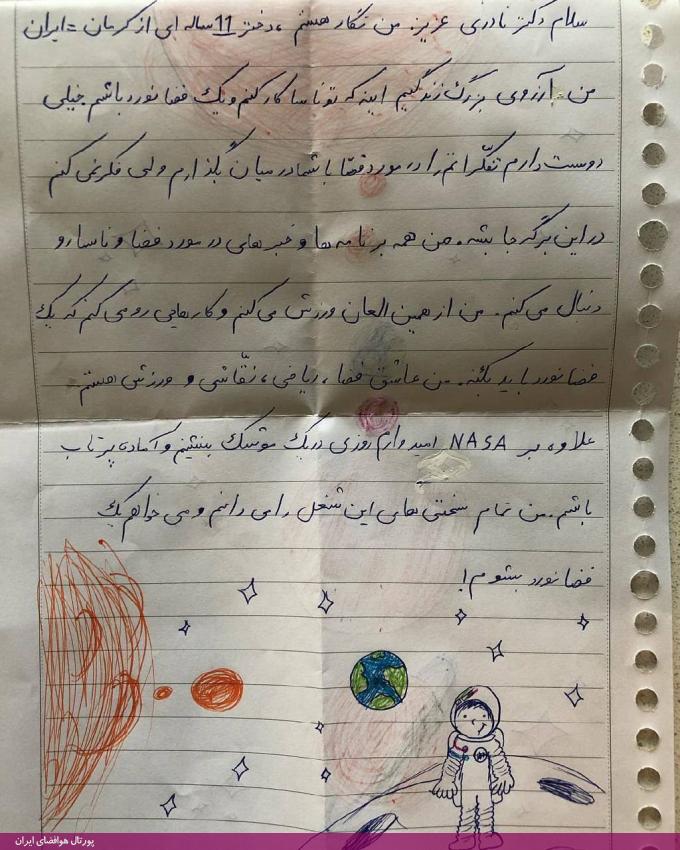 سلام دکتر نادری عزیز. من نگار هستم، دختر 11 ساله ای از کرمان =ایران
من آرزوی بزرگ زندگیم اینه که تو ناسا کار کنم و یک فضانورد باشم خیلی
دوست دارم تفکّراتم را در مورد فضا با شما در میان بگذارم ولی فکر نمی کنم
در این برگه جا بشه. من همه برنامه ها و خبر های در مورد فضا و ناسا رو
دنبال می کنم. من از همین العان ورزش می کنم و کارهایی رو می کنم که یک
فضانورد باید بکنه. من عاشق فضا، ریاضی، نقّاشی و ورزش هستم
علاوه بر NASA امیدوارم روزی در یک موشک بنشینم و آماده پرتاب
باشم. من تمام سختی های این شغل را می دانم و می خواهم یک
فضانورد بشوم!
پورتال هوافضای ایران